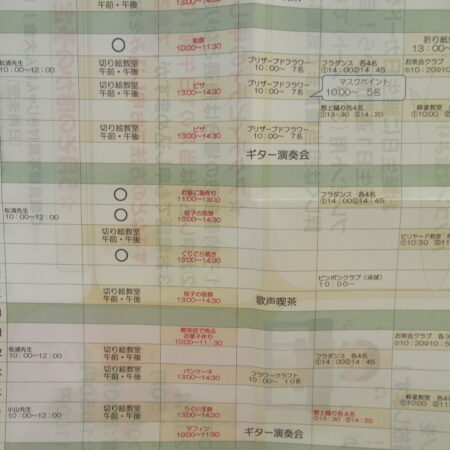 船祭
10:00～11:30
折り紙
13:00～
松浦先生
10:00～12:00
切り絵教室
午前・午後
プリザーブドフラワー
10:00～ 7名
フラダンス 各4名
①14:00②14:45
お茶会クラブ
①10:20②10:50
切り絵教室
午前・午後
ピザ
13:00～14:30
プリザーブドフラワー
10:00～ 7名
マスクペイント
10:00～ 5名
切り絵教室
午前・午後
ピザ
13:00～14:30
プリザーブドフラワー
10:00～ 7名
郡上踊り各4名
①13:30 ②14:20
麻雀教室
①10:00
ギター演奏会
11:00～13:00
フラダンス 各4名
①14:00②14:45
松浦先生
10:00～12:00
13:00～14:30
切り絵教室
午前・午後
ビリヤード教室
①10:30 ②
くりどら焼き
13:00～14:30
ピンポンクラブ（卓球）
10:00～
切り絵教室
午前・午後
13:00～14:30
歌声喫茶
喫茶店で売る
お菓子作り
10:00～11:30
お茶会クラブ 各3
松浦先生
10:00～12:00
切り絵教室
午前・午後
フラダンス 各4名
①14:00②14:45
切り絵教室
午前・午後
パンケーキ
13:00～14:30
フラワークラフト
10:00～ 10名
小山先生
10:00～12:00
うぐいす餅
13:00～14:30
郡上踊り各4名
①13:30 ②14:20
麻雀教室 各4
切り絵教室
午前・午後
マフィン
10:00～11:30
ギター演奏会